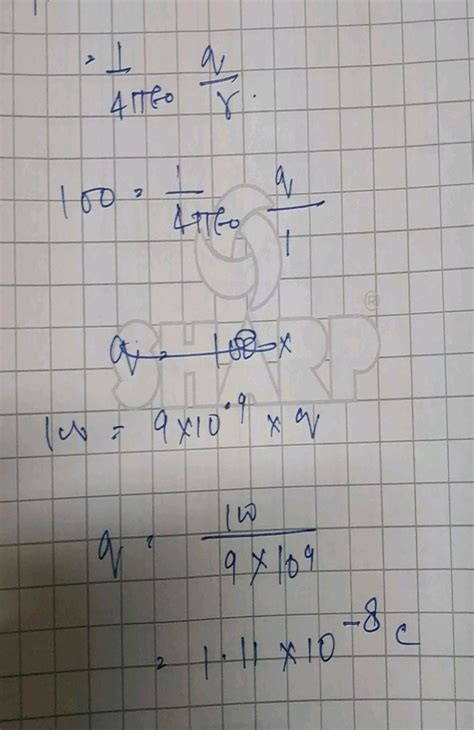 = 1/4π∈₀ q/r.
100 = 1/4π∈₀ q/1
q = 100 x
SHARP®
100 = 9×10⁹ × q
q = 100/9×10⁹
= 1.11 ×10⁻⁸ C